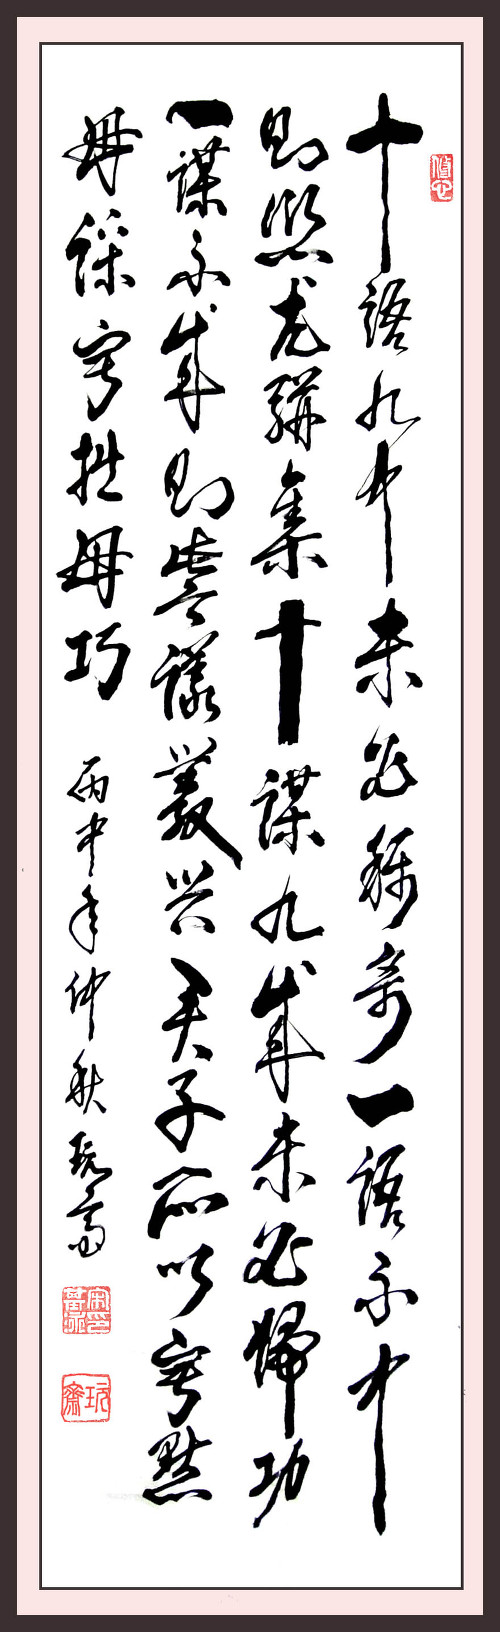 十語九中未必稱奇一語不中
則愆尤駢集十謀九成未必歸功
一謀不成則訾議叢興君子所以寧默
毋躁寧拙毋巧 丙申年仲秋玩齋
玩齋